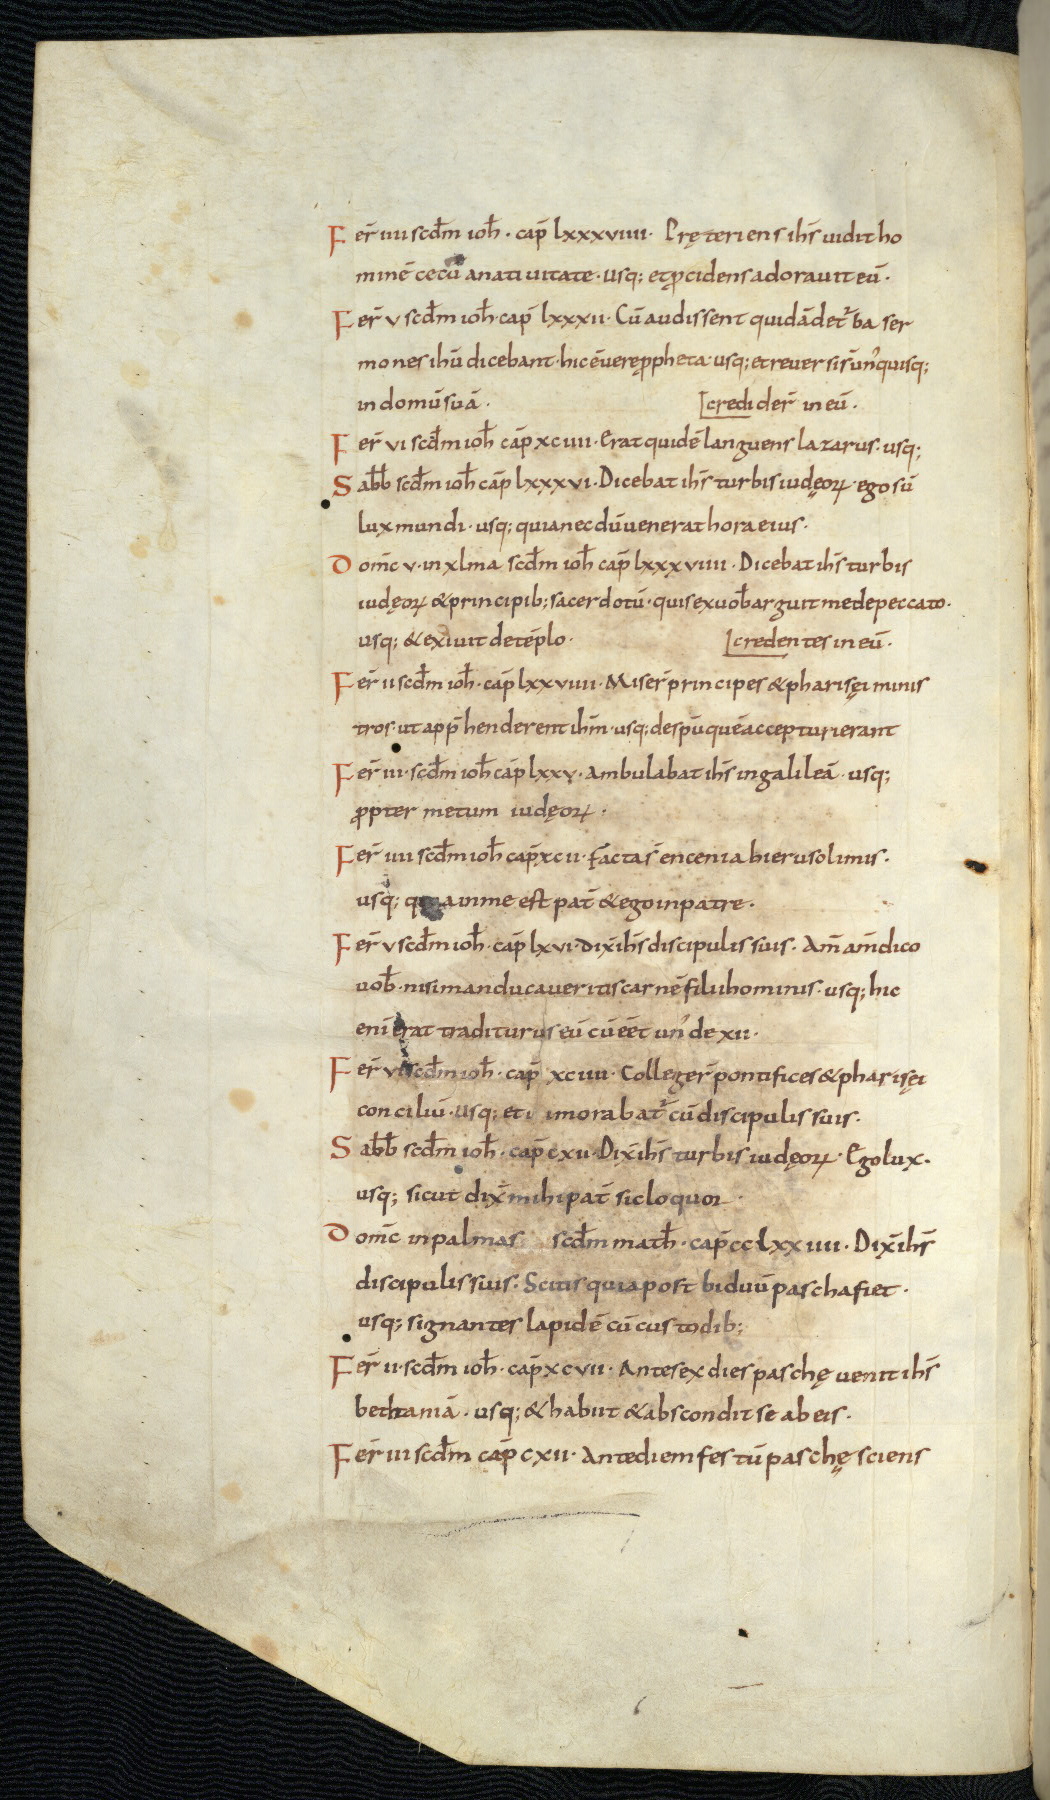 Fer̄ iiii scd̄m ioh̄ · cap̄ lxxxviiii · Pręteriens ih̄s uidit ho
minē cecū a natiuitate · usq; et p̱cidens adorauit eū ·
Fer̄ v scd̄m ioh̄ · cap̄ lxxxii · Cū audissent quidā de t̄ba ser
mones ihū dicebant · hic ē uere p̱pheta · usq; et reuersi s̄ un' quisq;
in domū suā ·
[credider̄ in eū ·
Fer̄ vi scd̄m ioh̄ cap̄ xciiii · Erat quidē languens lazarus · usq;
Sab̄b scd̄m ioh̄ cap̄ lxxxvi · Dicebat ih̄s turbis iudęoꝝ · ego sū
lux mundi · usq; quia necdū uenerat hora eius ·
Dom̄c v · in xlma scd̄m ioh̄ cap̄ lxxxviiii · Dicebat ih̄s turbis
iudęoꝝ & principib; sacerdotū · quis ex uob̄ arguit me de peccato ·
usq; & exiuit de tēplo ·
[credentes in eū ·
Fer̄ ii scd̄m ioh̄ · cap̄ lxxviiii · Miser̄ principes & pharisęi minis
tros · ut app̄henderent ih̄m · usq; de sp̄u quē accepturi erant
Fer̄ iii · scd̄m ioh̄ cap̄ lxxv · Ambulabat ih̄s in galileā · usq;
p̱pter metum iudęoꝝ ·
Fer̄ iiii scd̄m ioh̄ cap̄ xcii · Facta s̄ encenia hierusolimis ·
usq; quia in me est pat̄ & ego in patre ·
Fer̄ v scd̄m ioh̄ · cap̄ lxvi · dix̄ ih̄s discipulis suis · Am̄ am̄ dico
uob̄ · nisi manducaueritis carnē filii hominis · usq; hic
eni erat traditurus eū cū eēt un' de xii ·
Fer̄ vi scd̄m ioh̄ · cap̄ xciiii · Colleger̄ pontifices & pharisęi
conciliū · usq; et i imorabat̄ cū discipulis suis ·
Sab̄b scd̄m ioh̄ · cap̄ cxii · Dix̄ ih̄s turbis iudęoꝝ · Ego lux ·
usq; sicut dix̄ mihi pat̄ sic loquor ·
Dom̄c in palmas scd̄m math̄ · cap̄ cclxxiiii · Dix̄ ih̄s
discipulis suis · Scitis quia post biduū pascha fiet ·
usq; signantes lapidē cū custodib;
Fer̄ ii · scd̄m ioh̄ · cap̄ xcvii · Ante sex dies paschę uenit ih̄s
bethaniā · usq; & habiit & abscondit se ab eis ·
Fer̄ iii scd̄m cap̄ cxii · Ante diem festū paschę sciens